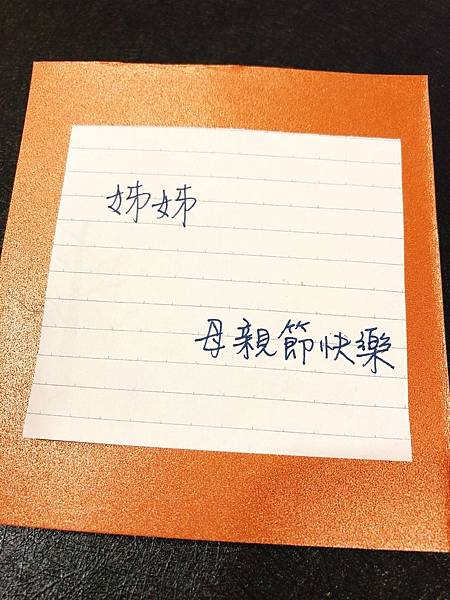 姊姊
母親節快樂